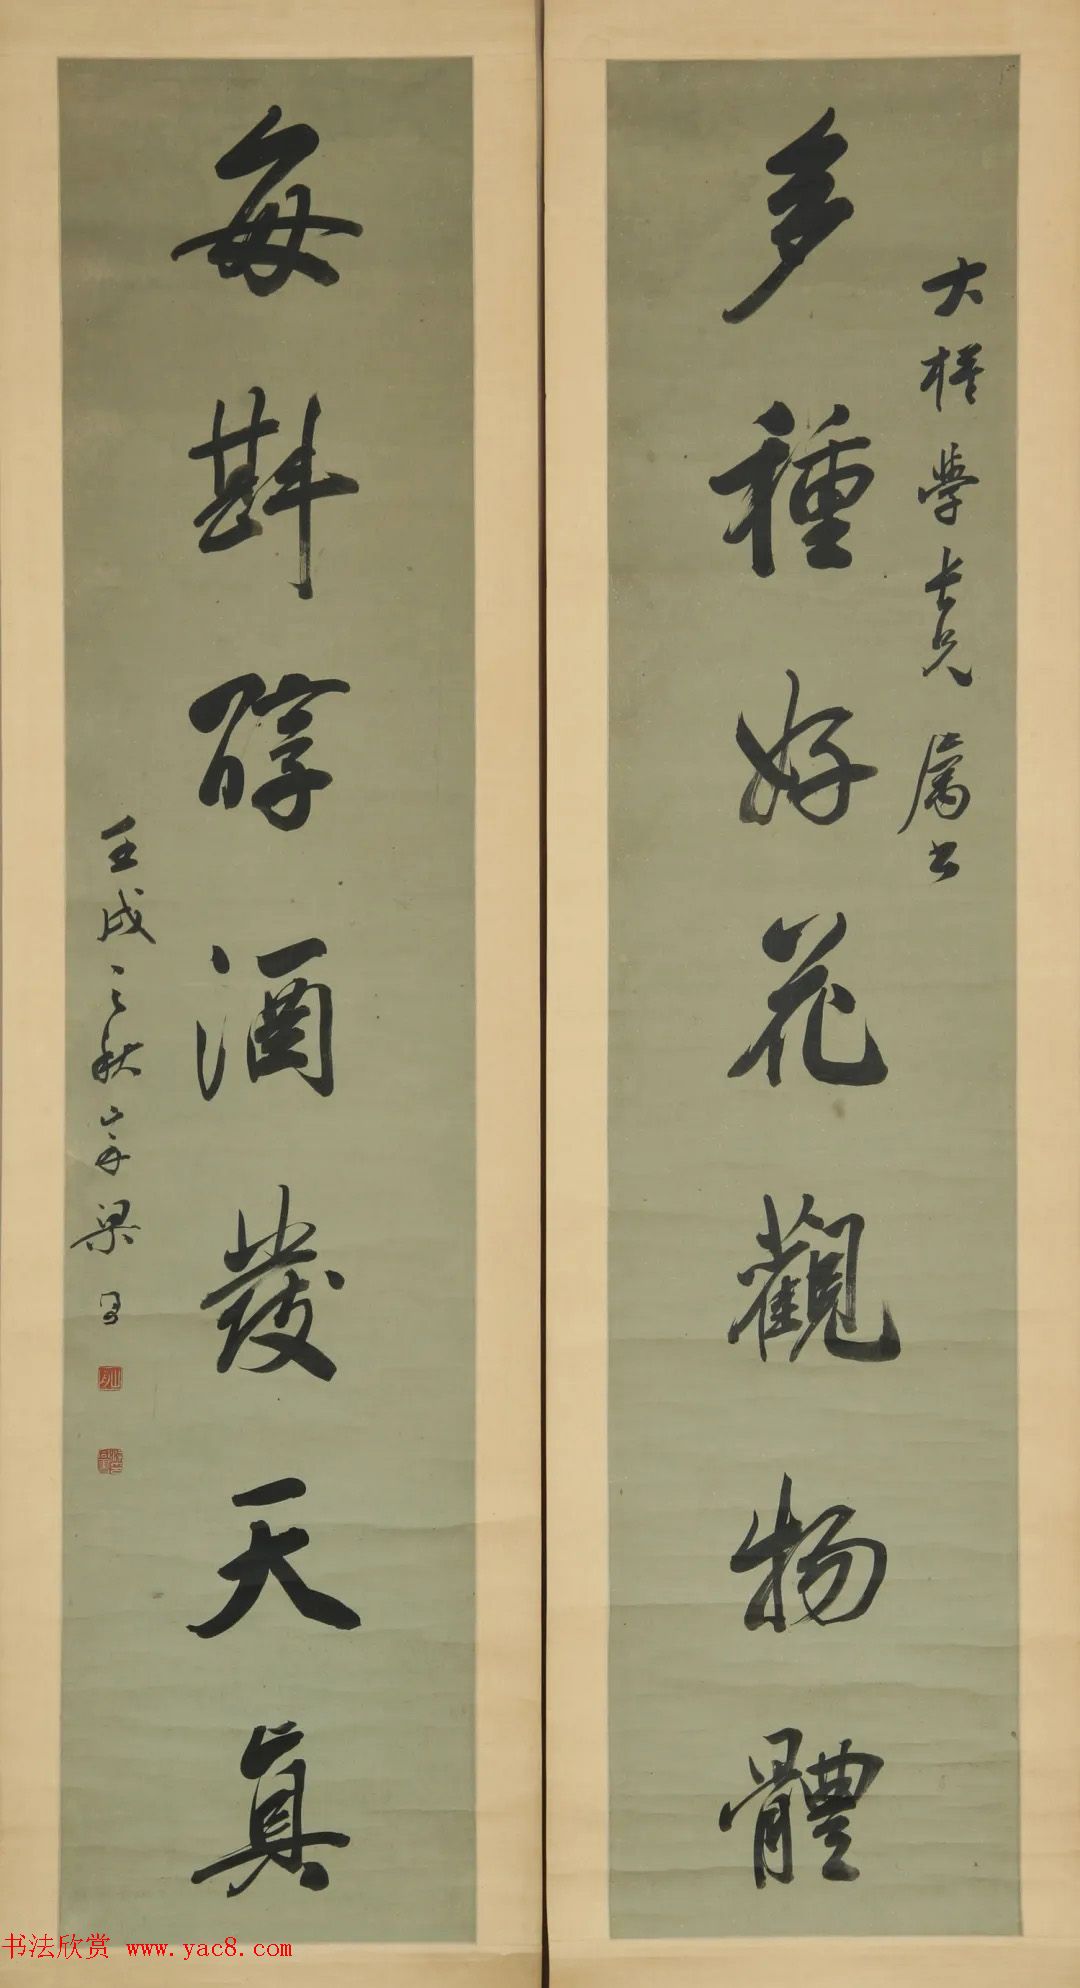 大樸學長兄 屬书
多種好花觀物體
每斟醇酒發天真
壬戌之秋 山舟 梁
书法欣赏 www.yac8.com